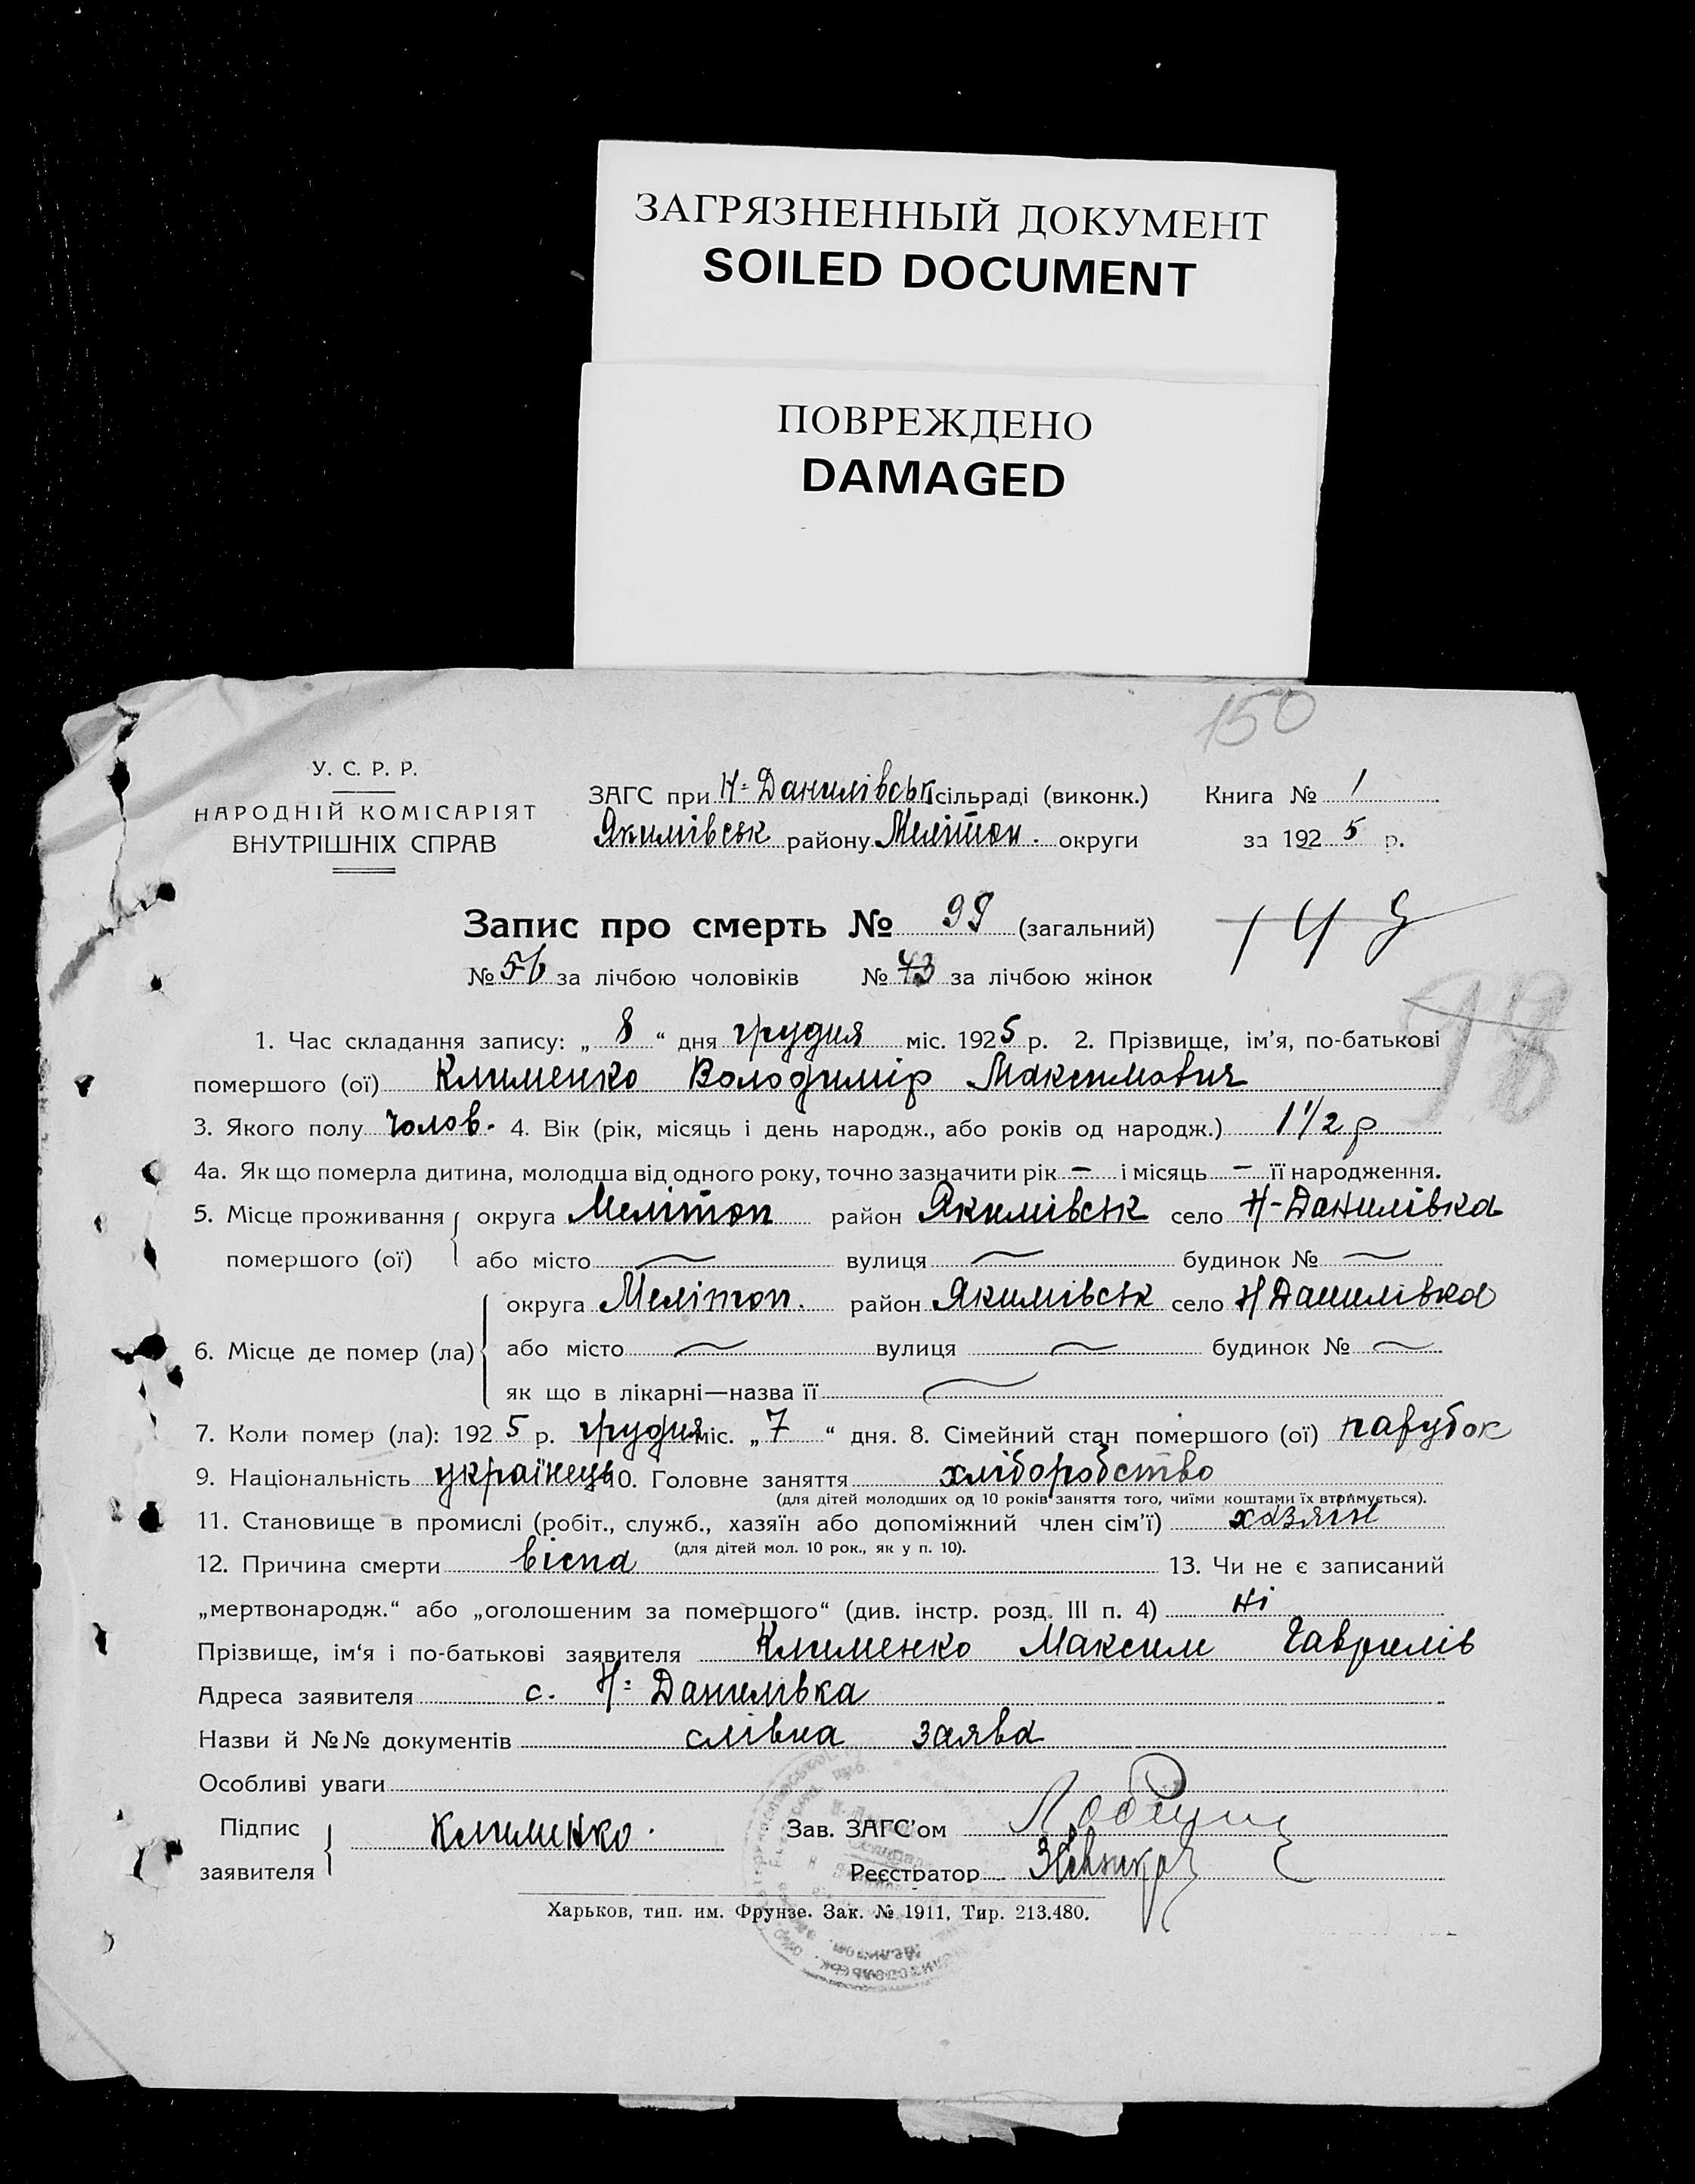 ЗАГРЯЗНЕННЫЙ ДОКУМЕНТ
SOILED DOCUMENT
ПОВРЕЖДЕНО
DAMAGED
150
У. С. Р. Р.
НАРОДНІЙ КОМІСАРІЯТ
ВНУТРІШНІХ СПРАВ
ЗАГС при Н-Данилівськ сільраді (виконк.) Книга № 1
Якимівськ району Мелітоп. округи за 1925 р.
Запис про смерть № 99 (загальний)
№ 56 за лічбою чоловіків № 43 за лічбою жінок
98
1. Час складання запису: „ 8 “ дня грудня міс. 1925 р. 2. Прізвище, ім'я, по-батькові
помершого (ої) Клименко Володимір Максимович
3. Якого полу чолов. 4. Вік (рік, місяць і день народж., або років од народж.) 1 1/2 р
4а. Як що померла дитина, молодша від одного року, точно зазначити рік — і місяць — її народження.
5. Місце проживання округа Мелітоп район Якимівськ село Н-Данилівка
помершого (ої) або місто — вулиця — будинок № —
округа Мелітоп. район Якимівськ село Н Данилівка
6. Місце де помер (ла) або місто — вулиця — будинок № —
як що в лікарні—назва її —
7. Коли помер (ла): 1925 р. грудня міс. „ 7 “ дня. 8. Сімейний стан помершого (ої) парубок
9. Національність українець 10. Головне заняття хліборобство
(для дітей молодших од 10 років заняття того, чиїми коштами їх втримується).
11. Становище в промислі (робіт., служб., хазяїн або допоміжний член сім'ї) хазяїн
(для дітей мол. 10 рок., як у п. 10).
12. Причина смерти віспа 13. Чи не є записаний
„мертвонародж.“ або „оголошеним за помершого“ (див. інстр. розд. III п. 4) ні
Прізвище, ім'я і по-батькові заявителя Клименко Максим Гаврилів
Адреса заявителя с. Н-Данилівка
Назви й №№ документів слівна заява
Особливі уваги
Підпис заявителя Клименко. Зав. ЗАГС'ом
Реєстратор
Харьков, тип. им. Фрунзе. Зак. № 1911, Тир. 213.480.